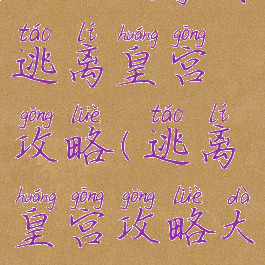 táo lí huáng gōng
逃离皇宫
gōng lüè ( táo lí
攻略(逃离
huáng gōng gōng lüè dà
皇宫攻略大